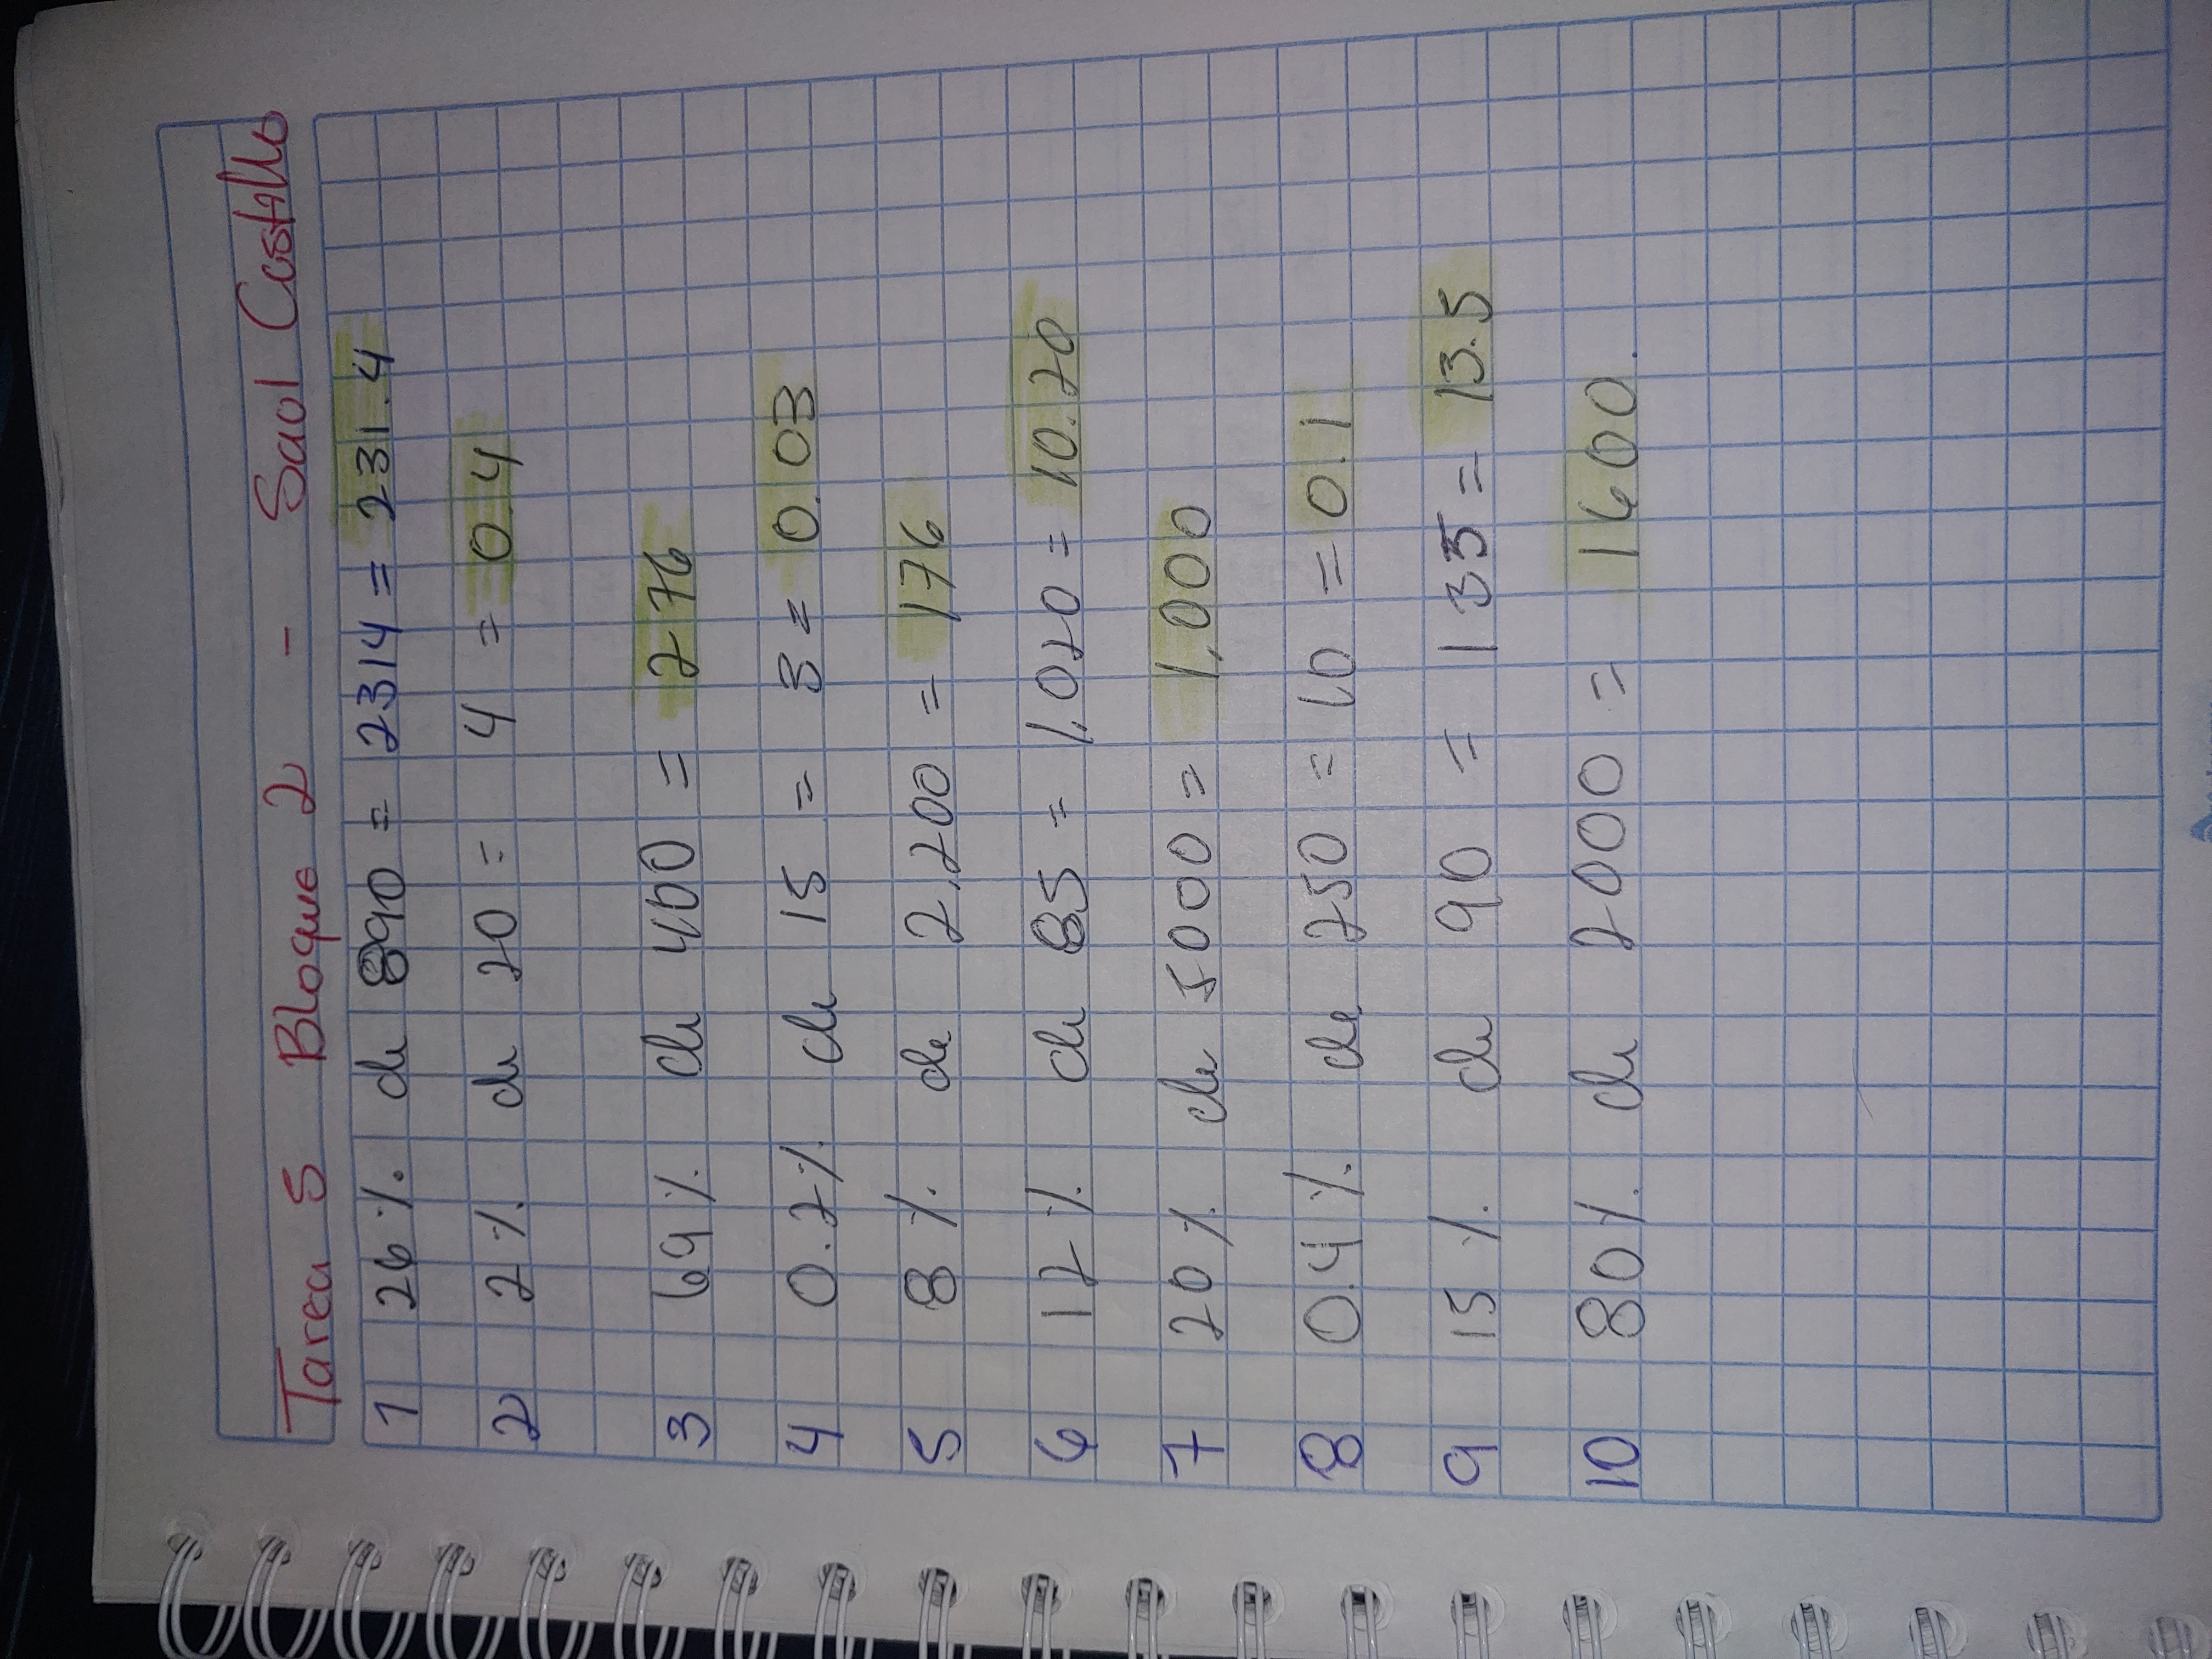 Tarea 5 Bloque 2 - Saol Castillo
1 26 % de 890 = 2314 = 231.4
2 2% de 20 = 4 = 0.4
3 69 % de 400 = 276
4 0.2% de 15 = 3 = 0.03
5 8 % de 2,200 = 176
6 12 % de 85 = 1,020 = 10.20
7 20 % de 5000 = 1,000
8 0.4 % de 250 = 10 = 0.1
9 15 % de 90 = 135 = 13.5
10 80 % de 2000 = 1600.